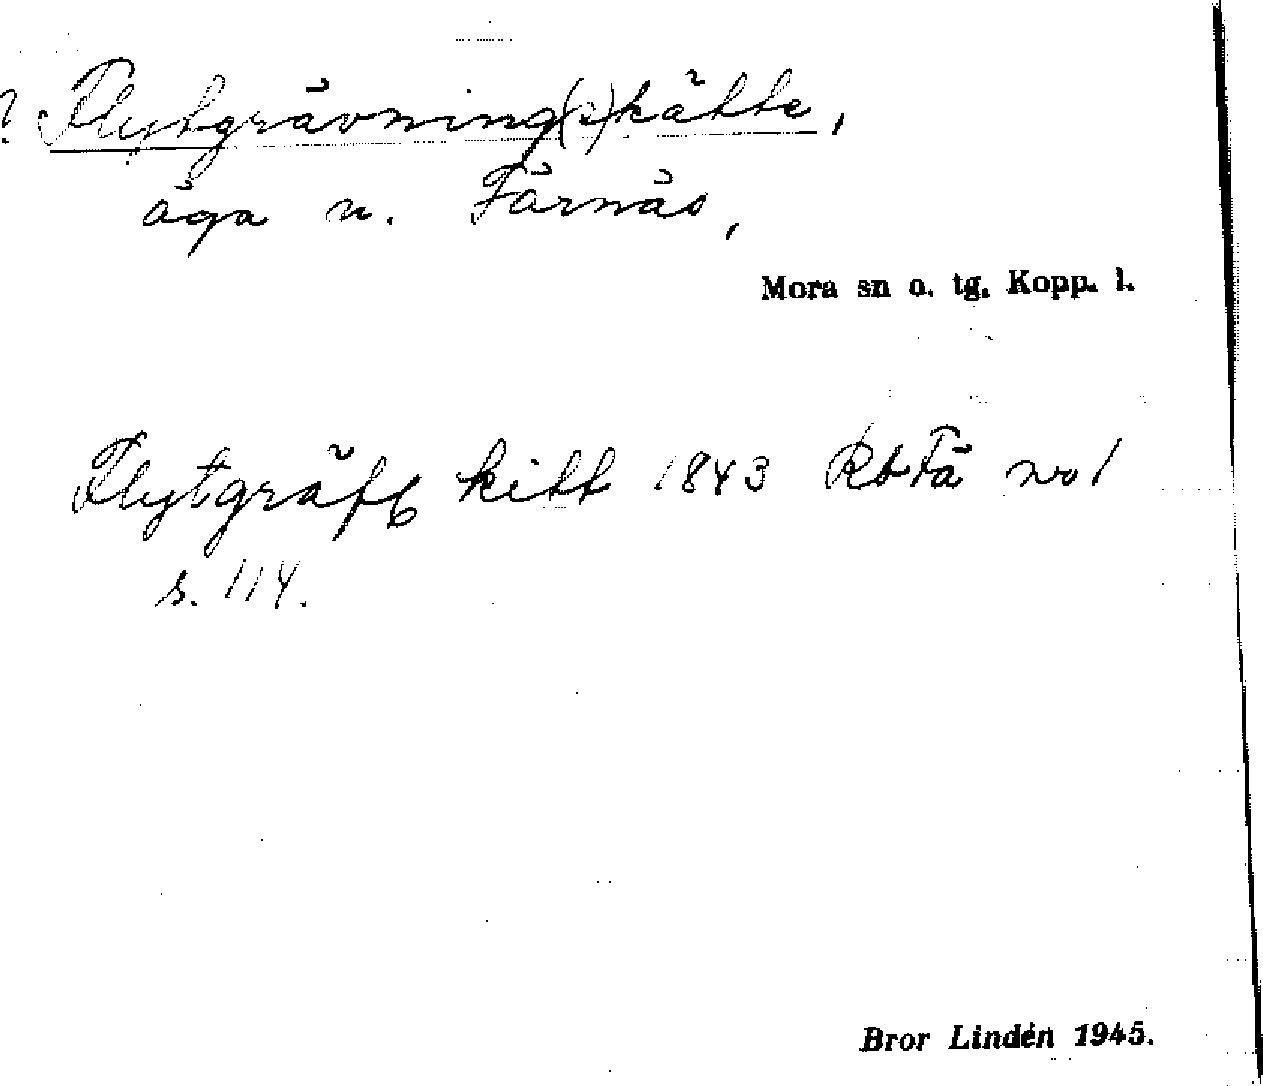 ? Flytgrävning(s)kätte,
äga n. Färnäs,
Mora sn o. tg. Kopp. l.
Flytgräfs kitt 1843 RbFä no 1
s. 114.
Bror Lindén 1945.